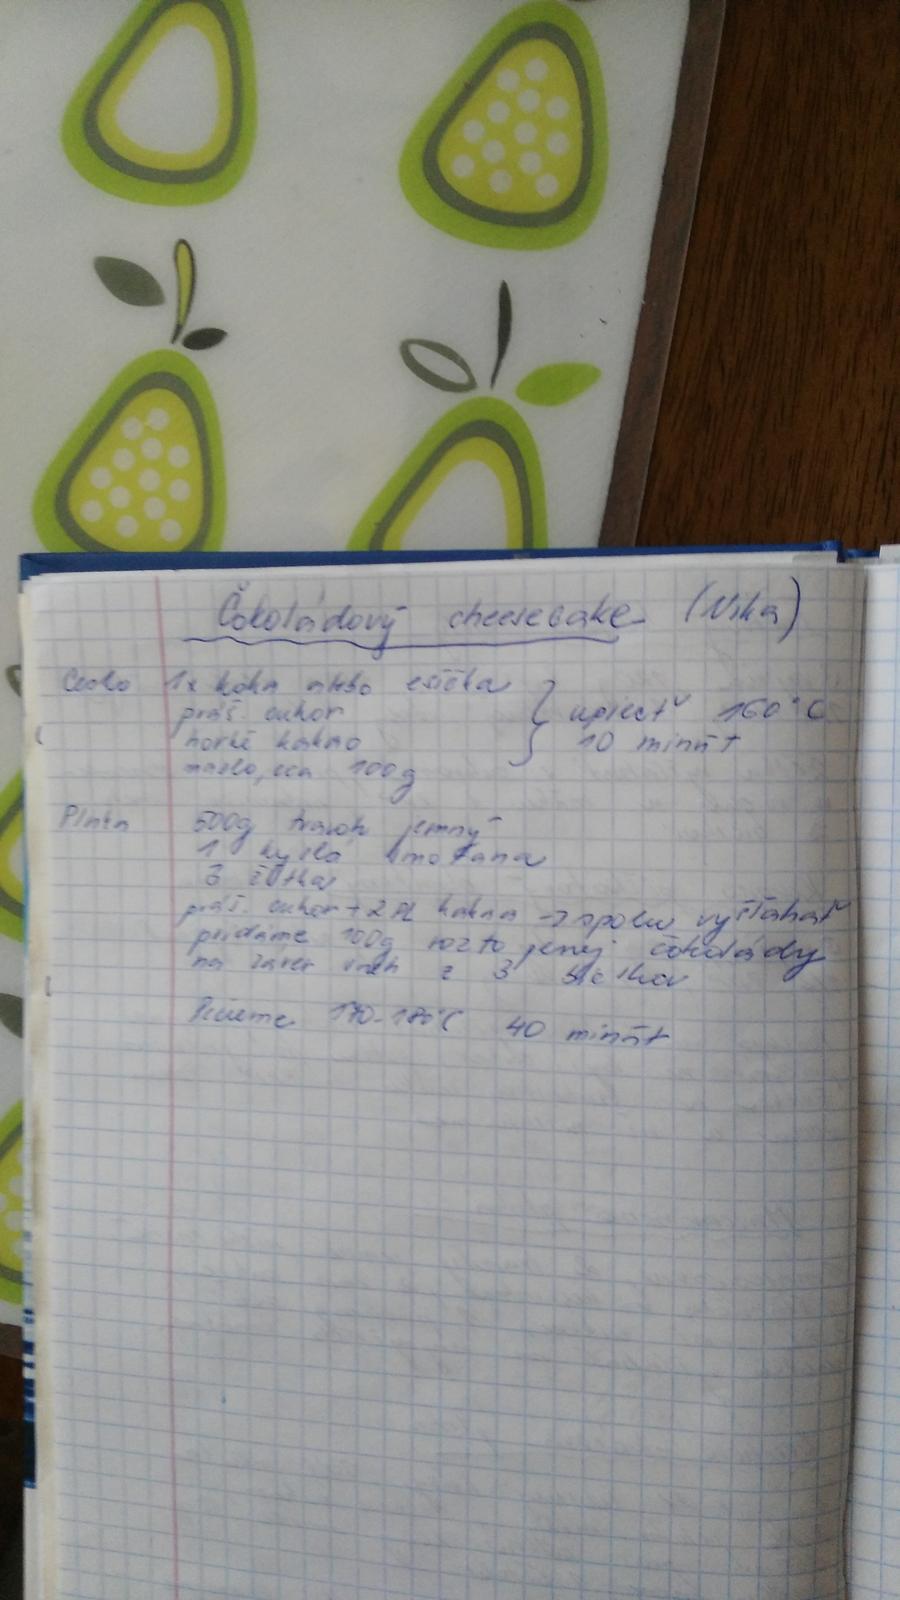 Čokoládový cheesecake
Cesto 1x koka alebo esíčka
práš. cukor
horké kakao
maslo, cca 100g
upiecť 160°C
10 minút
Plnka 500g tvaroh jemný
1 kyslá smotana
3 žĺtka
práš. cukor + 2 PL kakaa → spolu vyšľahať
pridáme 100g rozto jenej čokolády
na záver sneh z 3 bielkov
Pečieme 170-180°C 40 minút